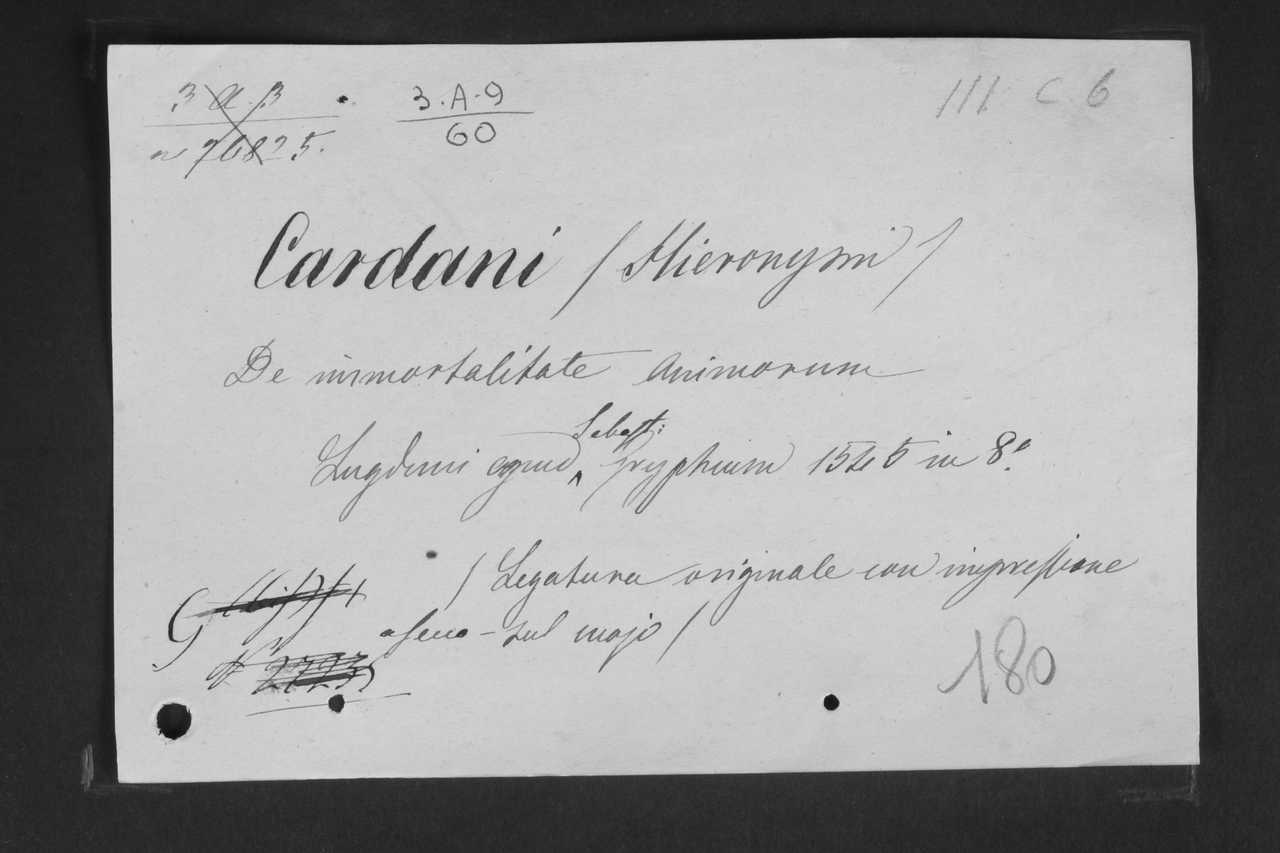 3 a 3
3.A-9
60
III C 6
n 70825.
Cardani / Hieronymi /
De immortalitate animorum
Sebast:
Lugduni apud Gryphium 1545 in 8º
/ Legatura originale con impressione
a secco - sul
180